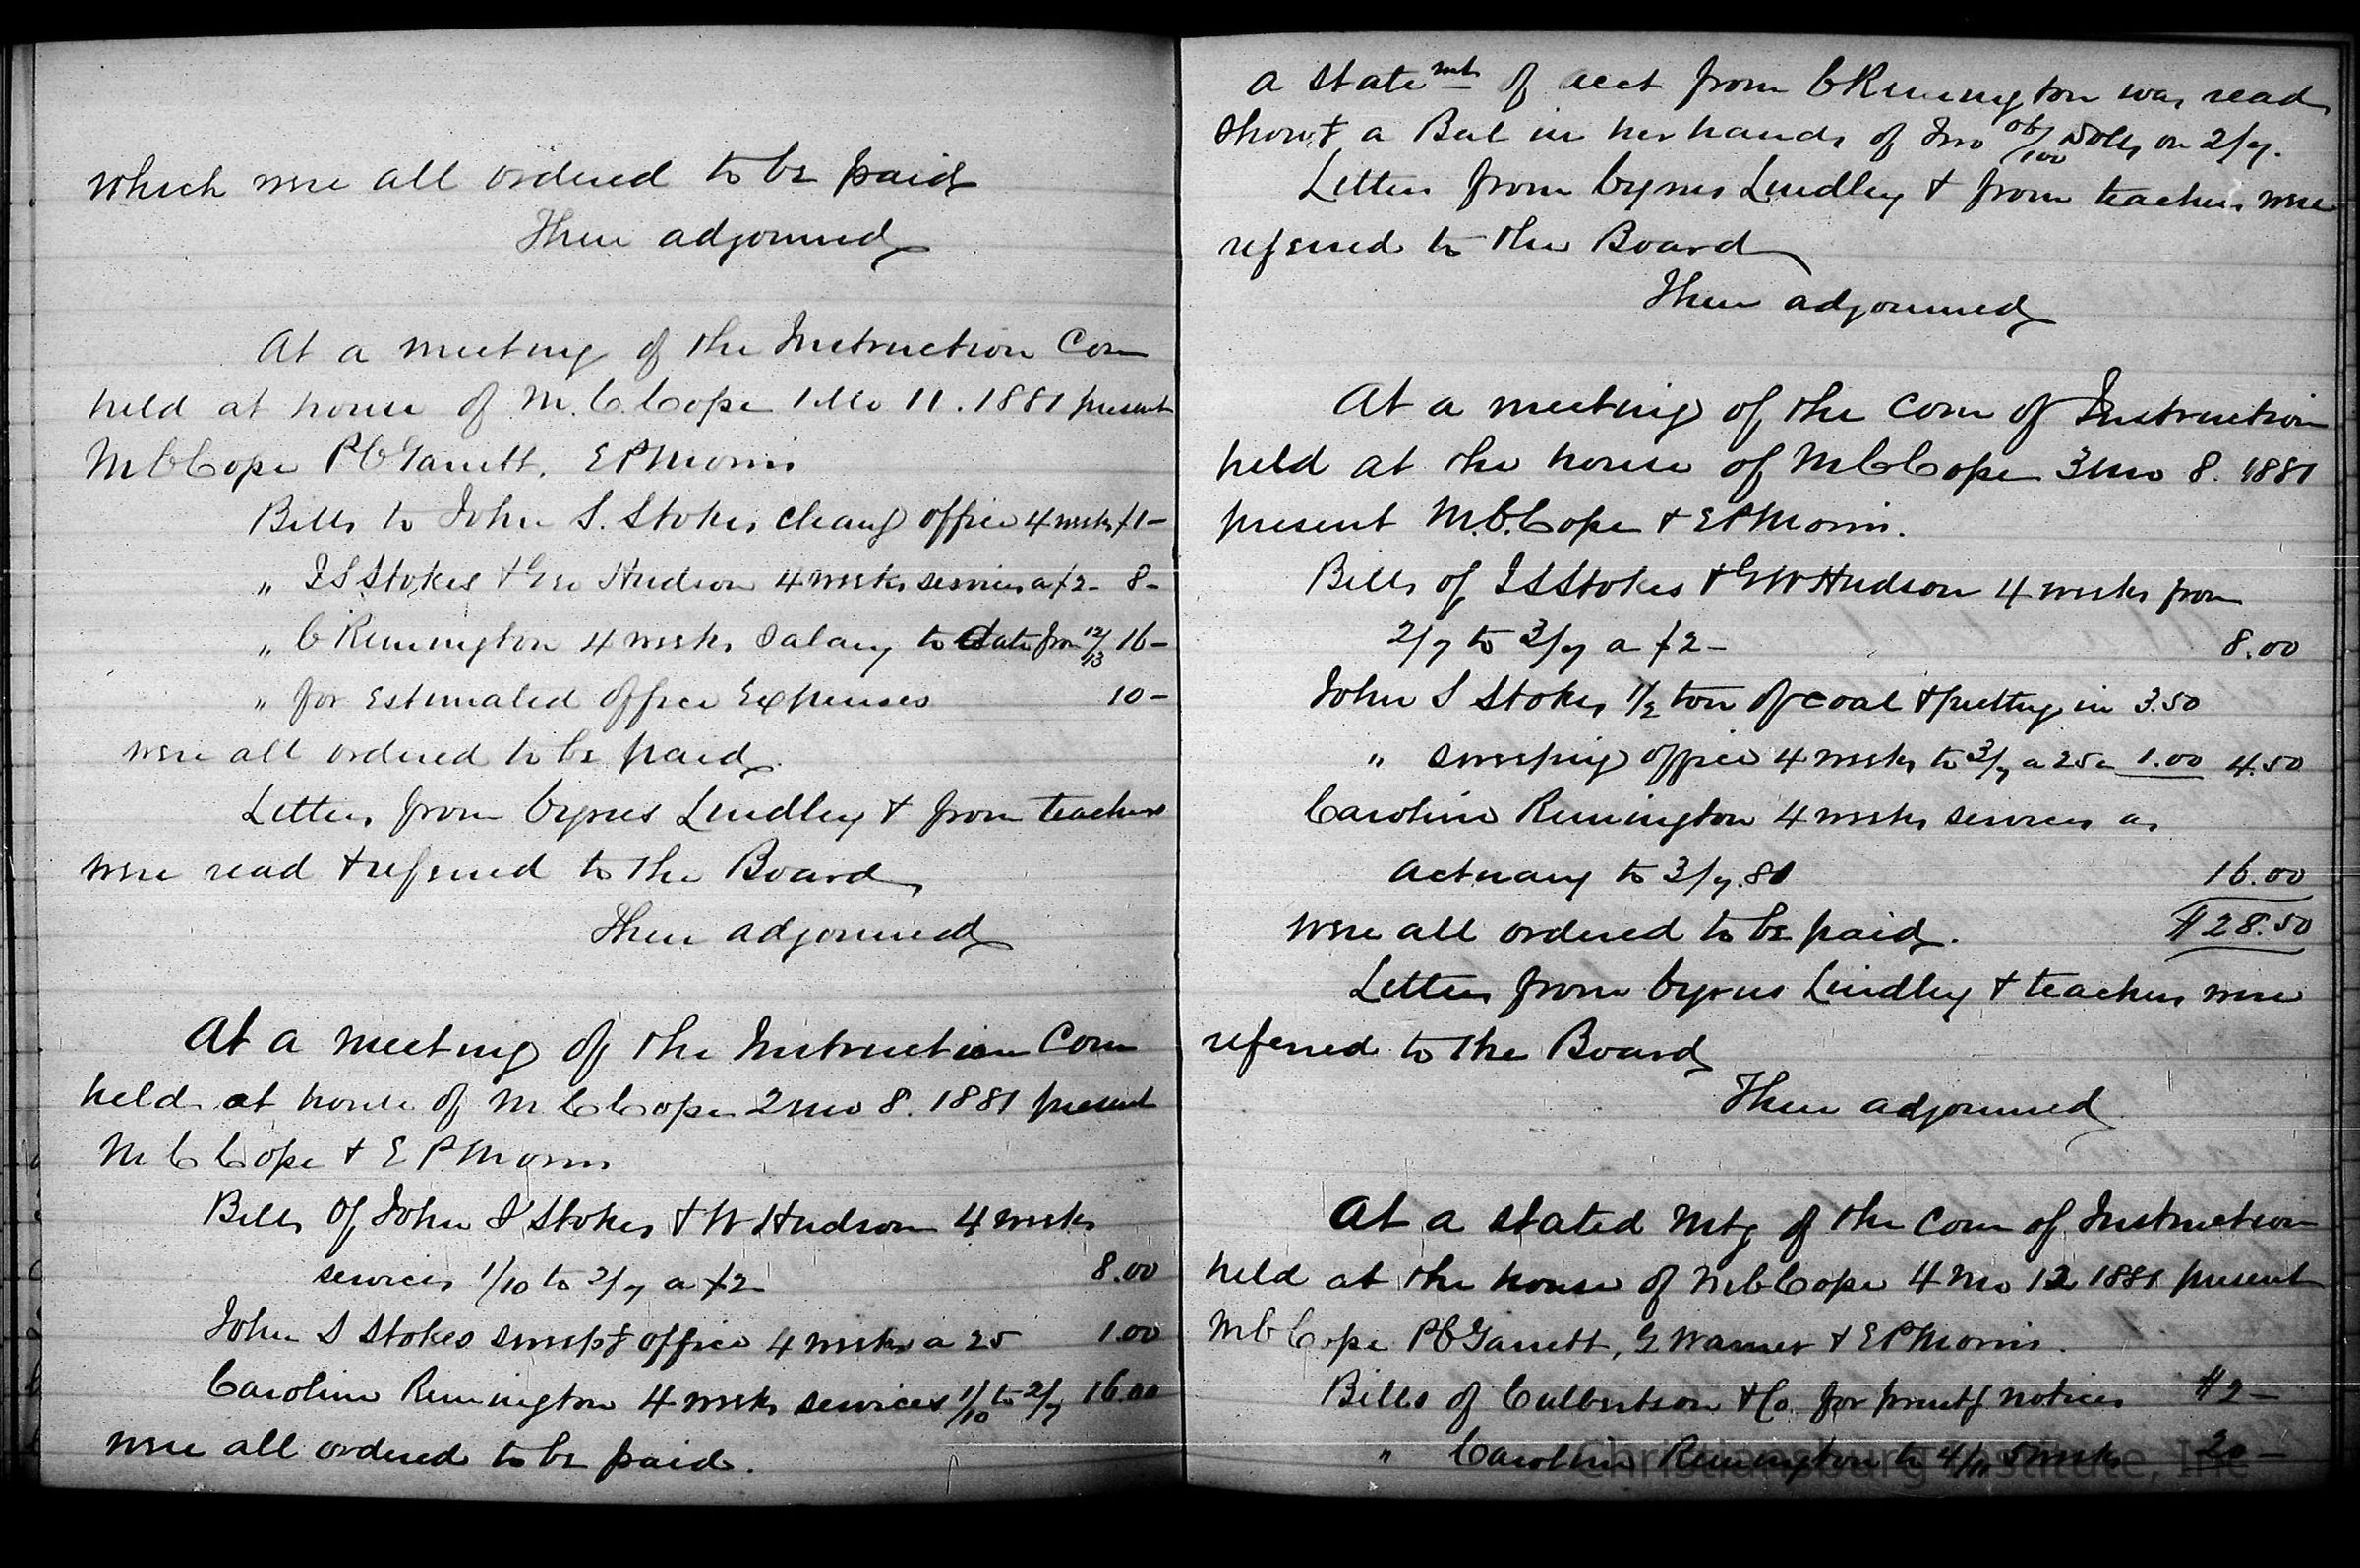 which were all ordered to be paid
Then adjourned
At a meeting of the Instruction Com
held at house of M. C. Cope 1 Mo 11. 1881 present
M C Cope P C Garrett, E P Morris
Bills to John S. Stokes cleang office 4 weeks $1-
" I S Stokes & Geo Hudson 4 weeks services a $2- 8-
" C Remington 4 weeks Salary to date from 12/13 16-
" for Estimated Office Expenses 10-
were all ordered to be paid
Letters from Cyrus Lindley & from teachers
were read & referred to the Board
Then adjourned
At a meeting of the Instruction Com
held at house of M C Cope 2 mo 8. 1881 present
M C Cope & E P Morris
Bills of John S Stokes & W Hudson 4 weeks
services 1/10 to 2/7 a $2 8.00
John S Stokes sweepg office 4 weeks a 25 1.00
Caroline Remington 4 weeks services 1/10 to 2/7 16.00
were all ordered to be paid.
a statemt of acct from C Remington was read
showg a Bal in her hands of 06/100 Dolls on 2/7.
Letters from Cyrus Lindley & from teachers were
referred to the Board
Then adjourned
At a meeting of the Com of Instruction
held at the house of M C Cope 3 mo 8. 1881
present M. C. Cope & E P Morris.
Bills of I S Stokes & G W Hudson 4 weeks from
2/7 to 3/7 a $2- 8.00
John S Stokes 1/2 ton of coal & putting in 3.50
" sweeping office 4 weeks to 3/7 a 25c 1.00 4.50
Caroline Remington 4 weeks services as
Actuary to 3/7. 81 16.00
were all ordered to be paid. $28.50
Letters from Cyrus Lindley & teachers were
referred to the Board
Then adjourned
At a stated Mtg of the Com of Instruction
held at the house of M C Cope 4 Mo 12 1881 present
M C Cope P C Garrett, G Warner & E P Morris.
Bills of Culbertson & Co. for printg notices $2-
" Caroline Remington to 4/11 5 weeks 20-
Christiansburg Institute, Inc